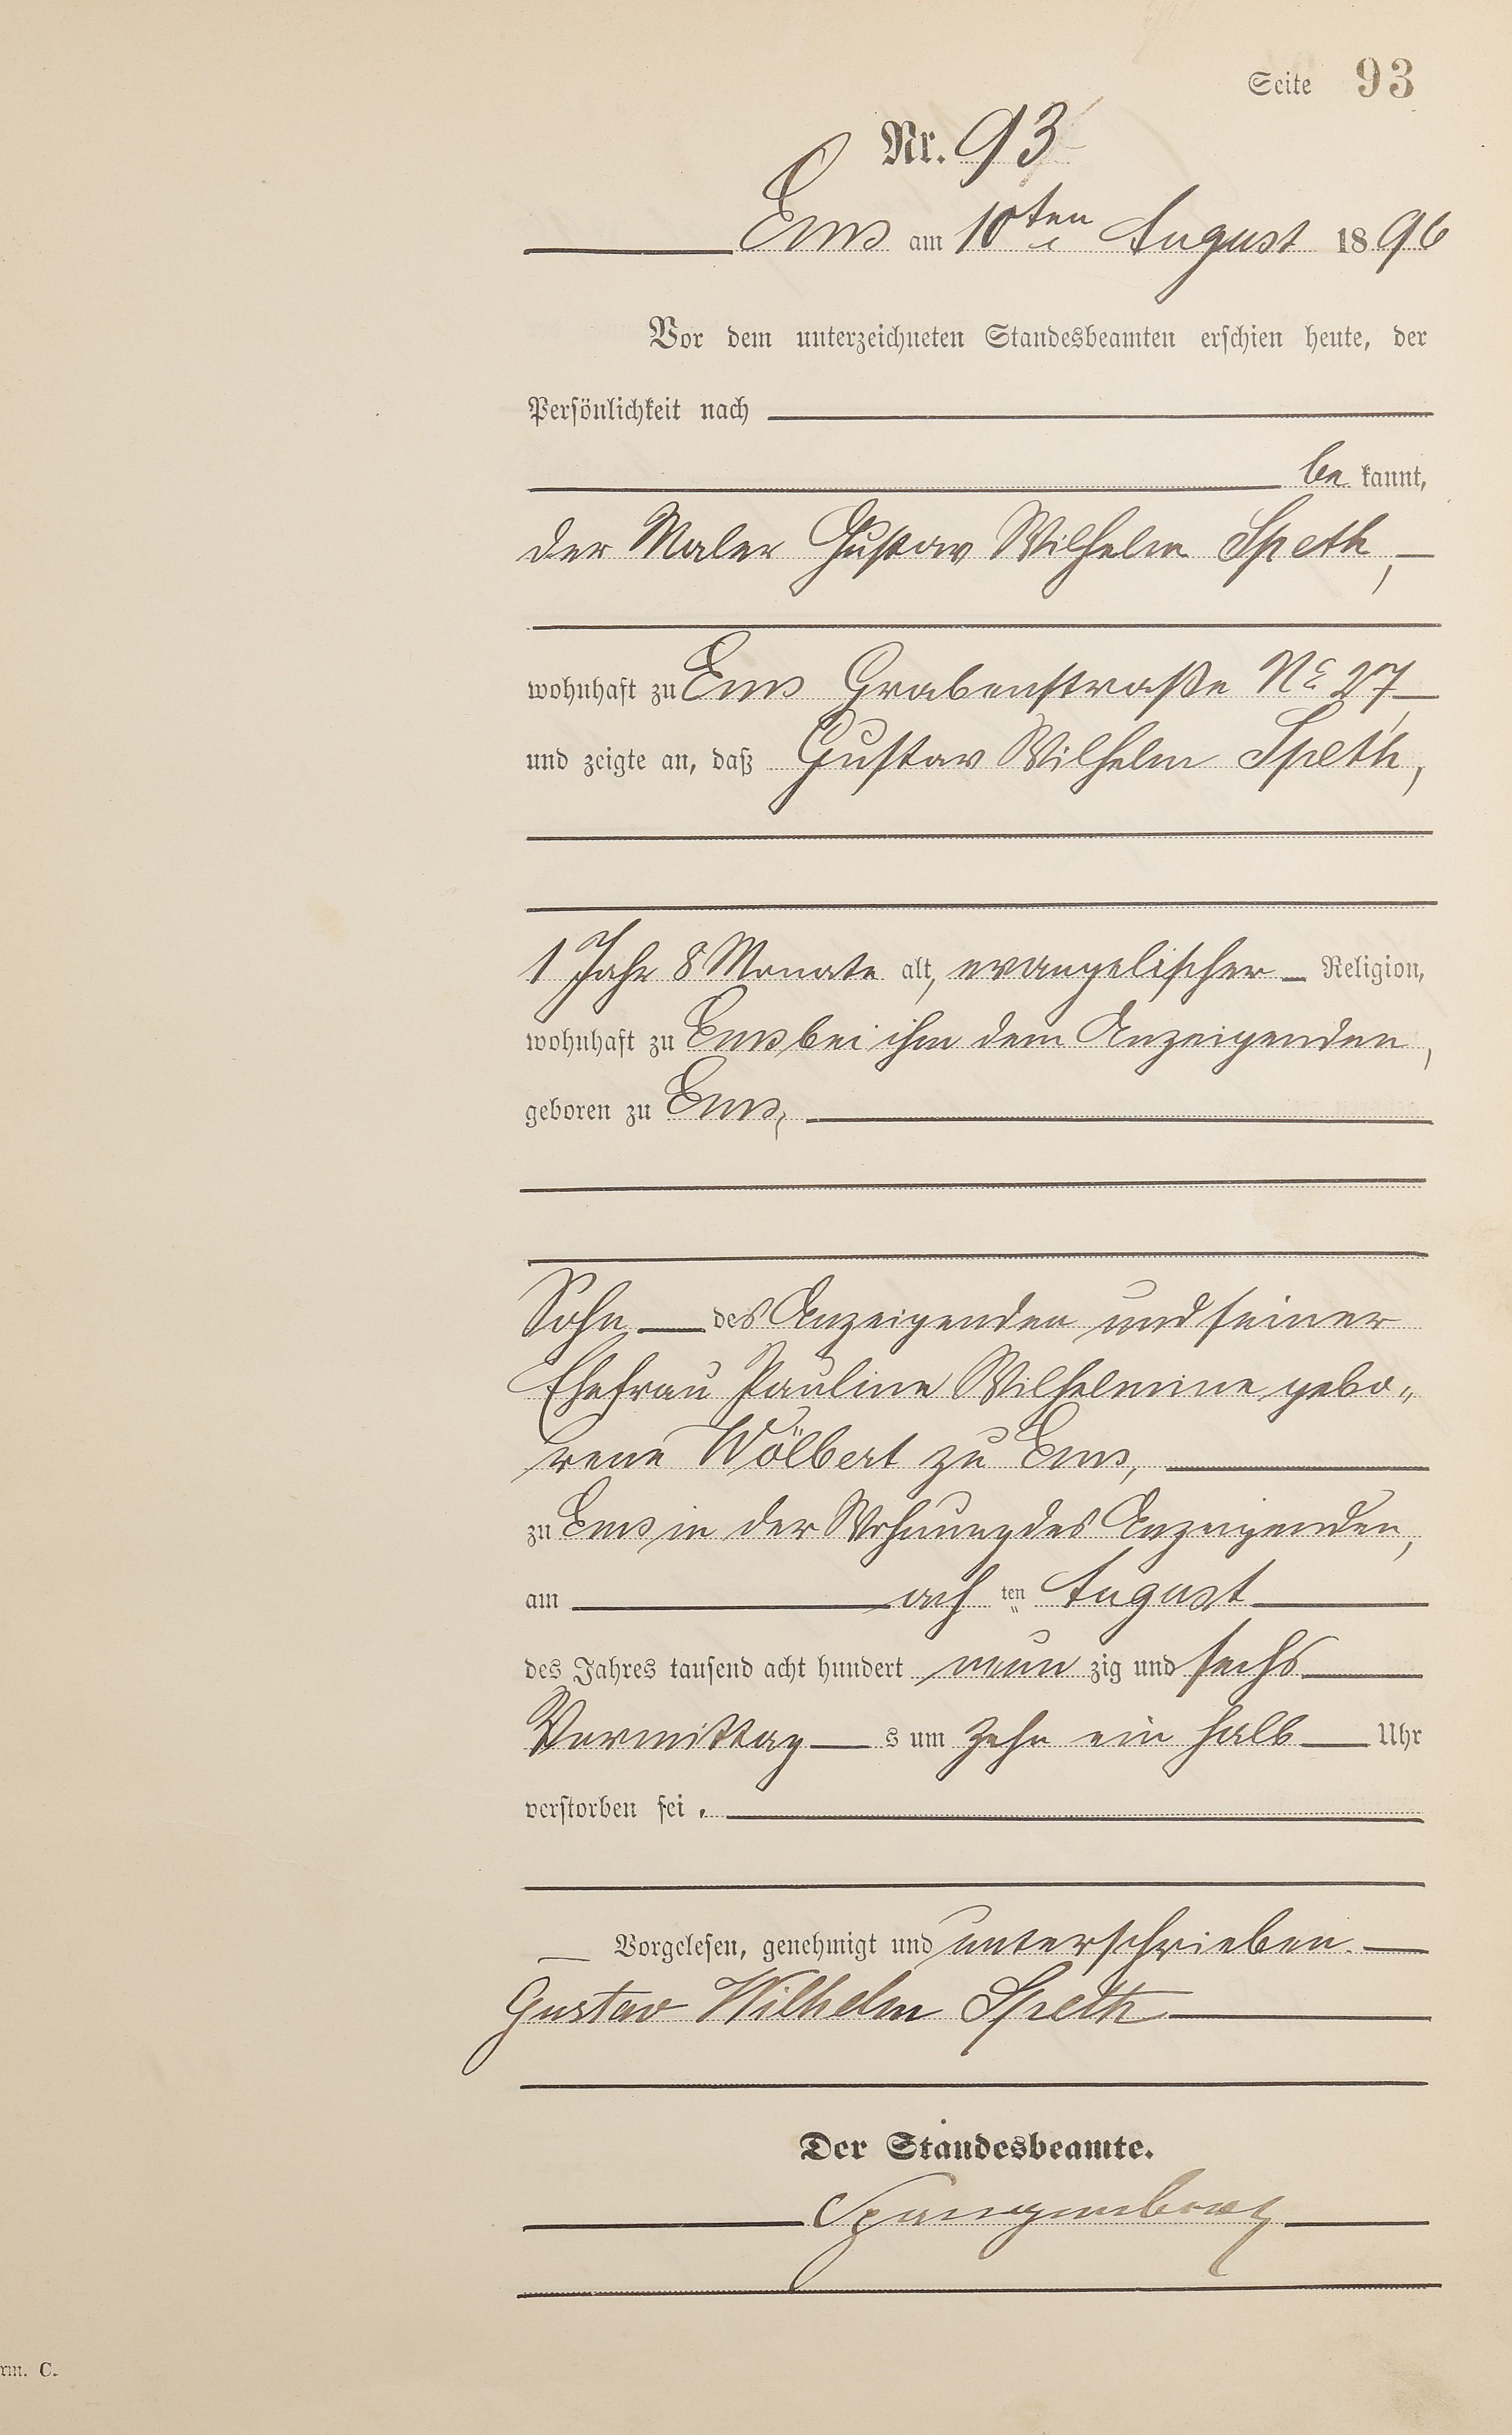 Seite 93
Nr. 93
Ems am 10ten August 1896
Vor dem unterzeichneten Standesbeamten erschien heute, der
Persönlichkeit nach
be kannt,
der Maler Gustav Wilhelm Speth,
wohnhaft zu Ems Grabenstraße No 27
und zeigte an, daß Gustav Wilhelm Speth,
1 Jahr 8 Monate alt, evangelischer Religion,
wohnhaft zu Ems bei ihm dem Anzeigenden,
geboren zu Ems,
Sohn des Anzeigenden und seiner
Ehefrau Pauline Wilhelmine gebo„
rene Wölbert zu Ems,
zu Ems in der Wohnung des Anzeigenden,
am ach ten August
des Jahres tausend acht hundert neun zig und sechs
Vormittag s um zehn ein halb Uhr
verstorben sei.
Vorgelesen, genehmigt und unterschrieben.
Gustav Wilhelm Speth
Der Standesbeamte.
Spangenberg
rm. C.